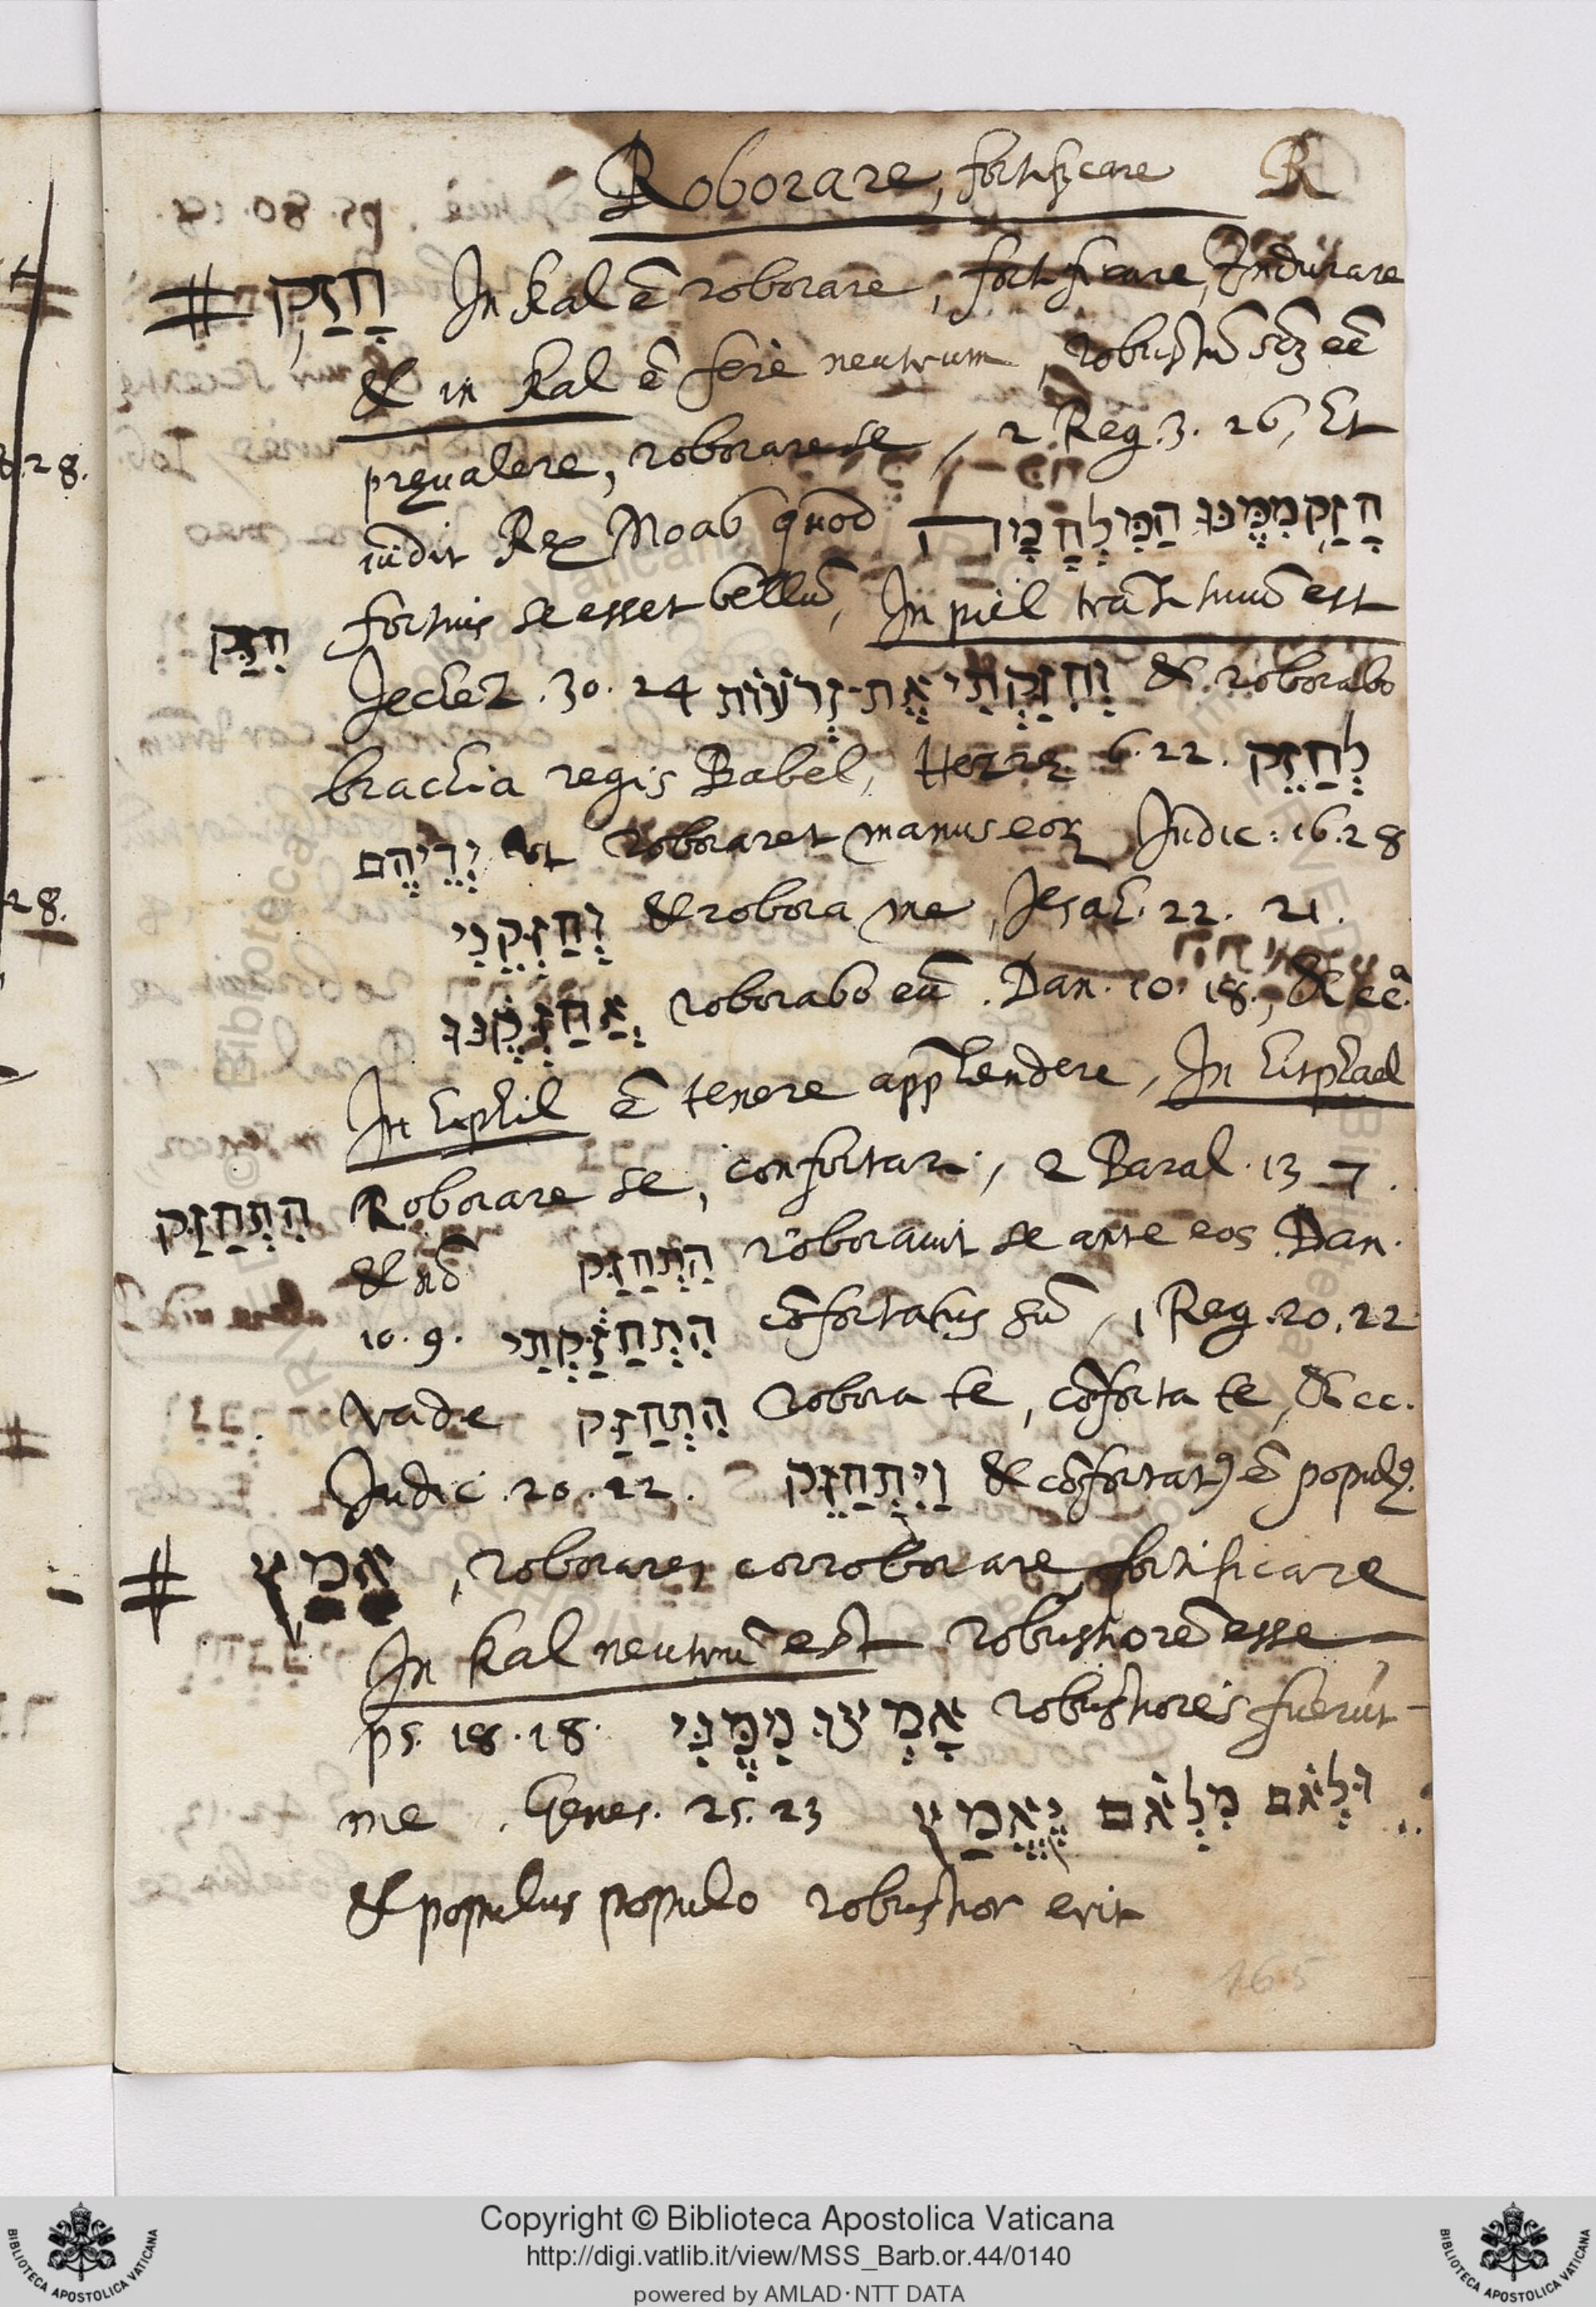 Roborare, fortificare R
# חָזַק In kal ē roborare, fortificare, Indurare
& in kal ē ferè neutrum, robustū scꝫ eē
pręualere, roborare se, 2 Reg. 3. 26, Et
uidit Rex Moab quod חָזַק מִמֶּנּוּ הַמִּלְחָמָה
fortius se esset bellū, In piel trāsituū est
חִזַּק
Jechez. 30. 24 וְחִזַּקְתִּי אֶת־זְרֹעוֹת & roborabo
brachia regis Babel, Hezrę 6. 22. לְחַזֵּק
יְדֵיהֶם ut roboraret manus eoꝝ Judic: 16. 28
וְחַזְּקֵנִי & robora me, Jesah. 22. 21.
אֲחַזְּקֶנּוּ roborabo eū. Dan. 10. 18, &cc.ª
In hiphil ē tenere apphendere, In hithpael
הִתְחַזַּק Roborare se, confortari, 2 Paral. 13 7.
& nō הִתְחַזַּק roborauit se ante eos Dan.
10. 9. הִתְחַזַּקְתִּי cōfortatus sū, 1 Reg. 20. 22
vade הִתְחַזַּק robora te, cōforta te, &cc.
Judic. 20. 22. וַיִּתְחַזֵּק & cōfortatꝰ ē populꝰ.
# אמץ, roborare, corroborare, fortificare
In kal neutrū est robustiorē esse
ps. 18. 18. אָמְצוּ מִמֶּנִּי robustiores fuerūt
me. Genes. 25. 23 וּלְאֹם מִלְאֹם יֶאֱמָץ
& populus populo robustior erit
165
8.28.
28.
Copyright © Biblioteca Apostolica Vaticana
http://digi.vatlib.it/view/MSS_Barb.or.44/0140
powered by AMLAD·NTT DATA
BIBLIOTECA APOSTOLICA VATICANA
BIBLIOTECA APOSTOLICA VATICANA